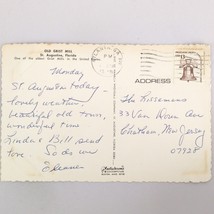 OLD GRIST MILL
St. Augustine, Florida
One of the oldest Grist Mills in the United States
Monday
St. Augustine today -
lovely weather,
beautiful old town,
wonderful time
Linda & Bill send
love. So do we
Eleanor
ADDRESS
The
33 Van Doren Ave
Chatham New Jersey
07928
PM